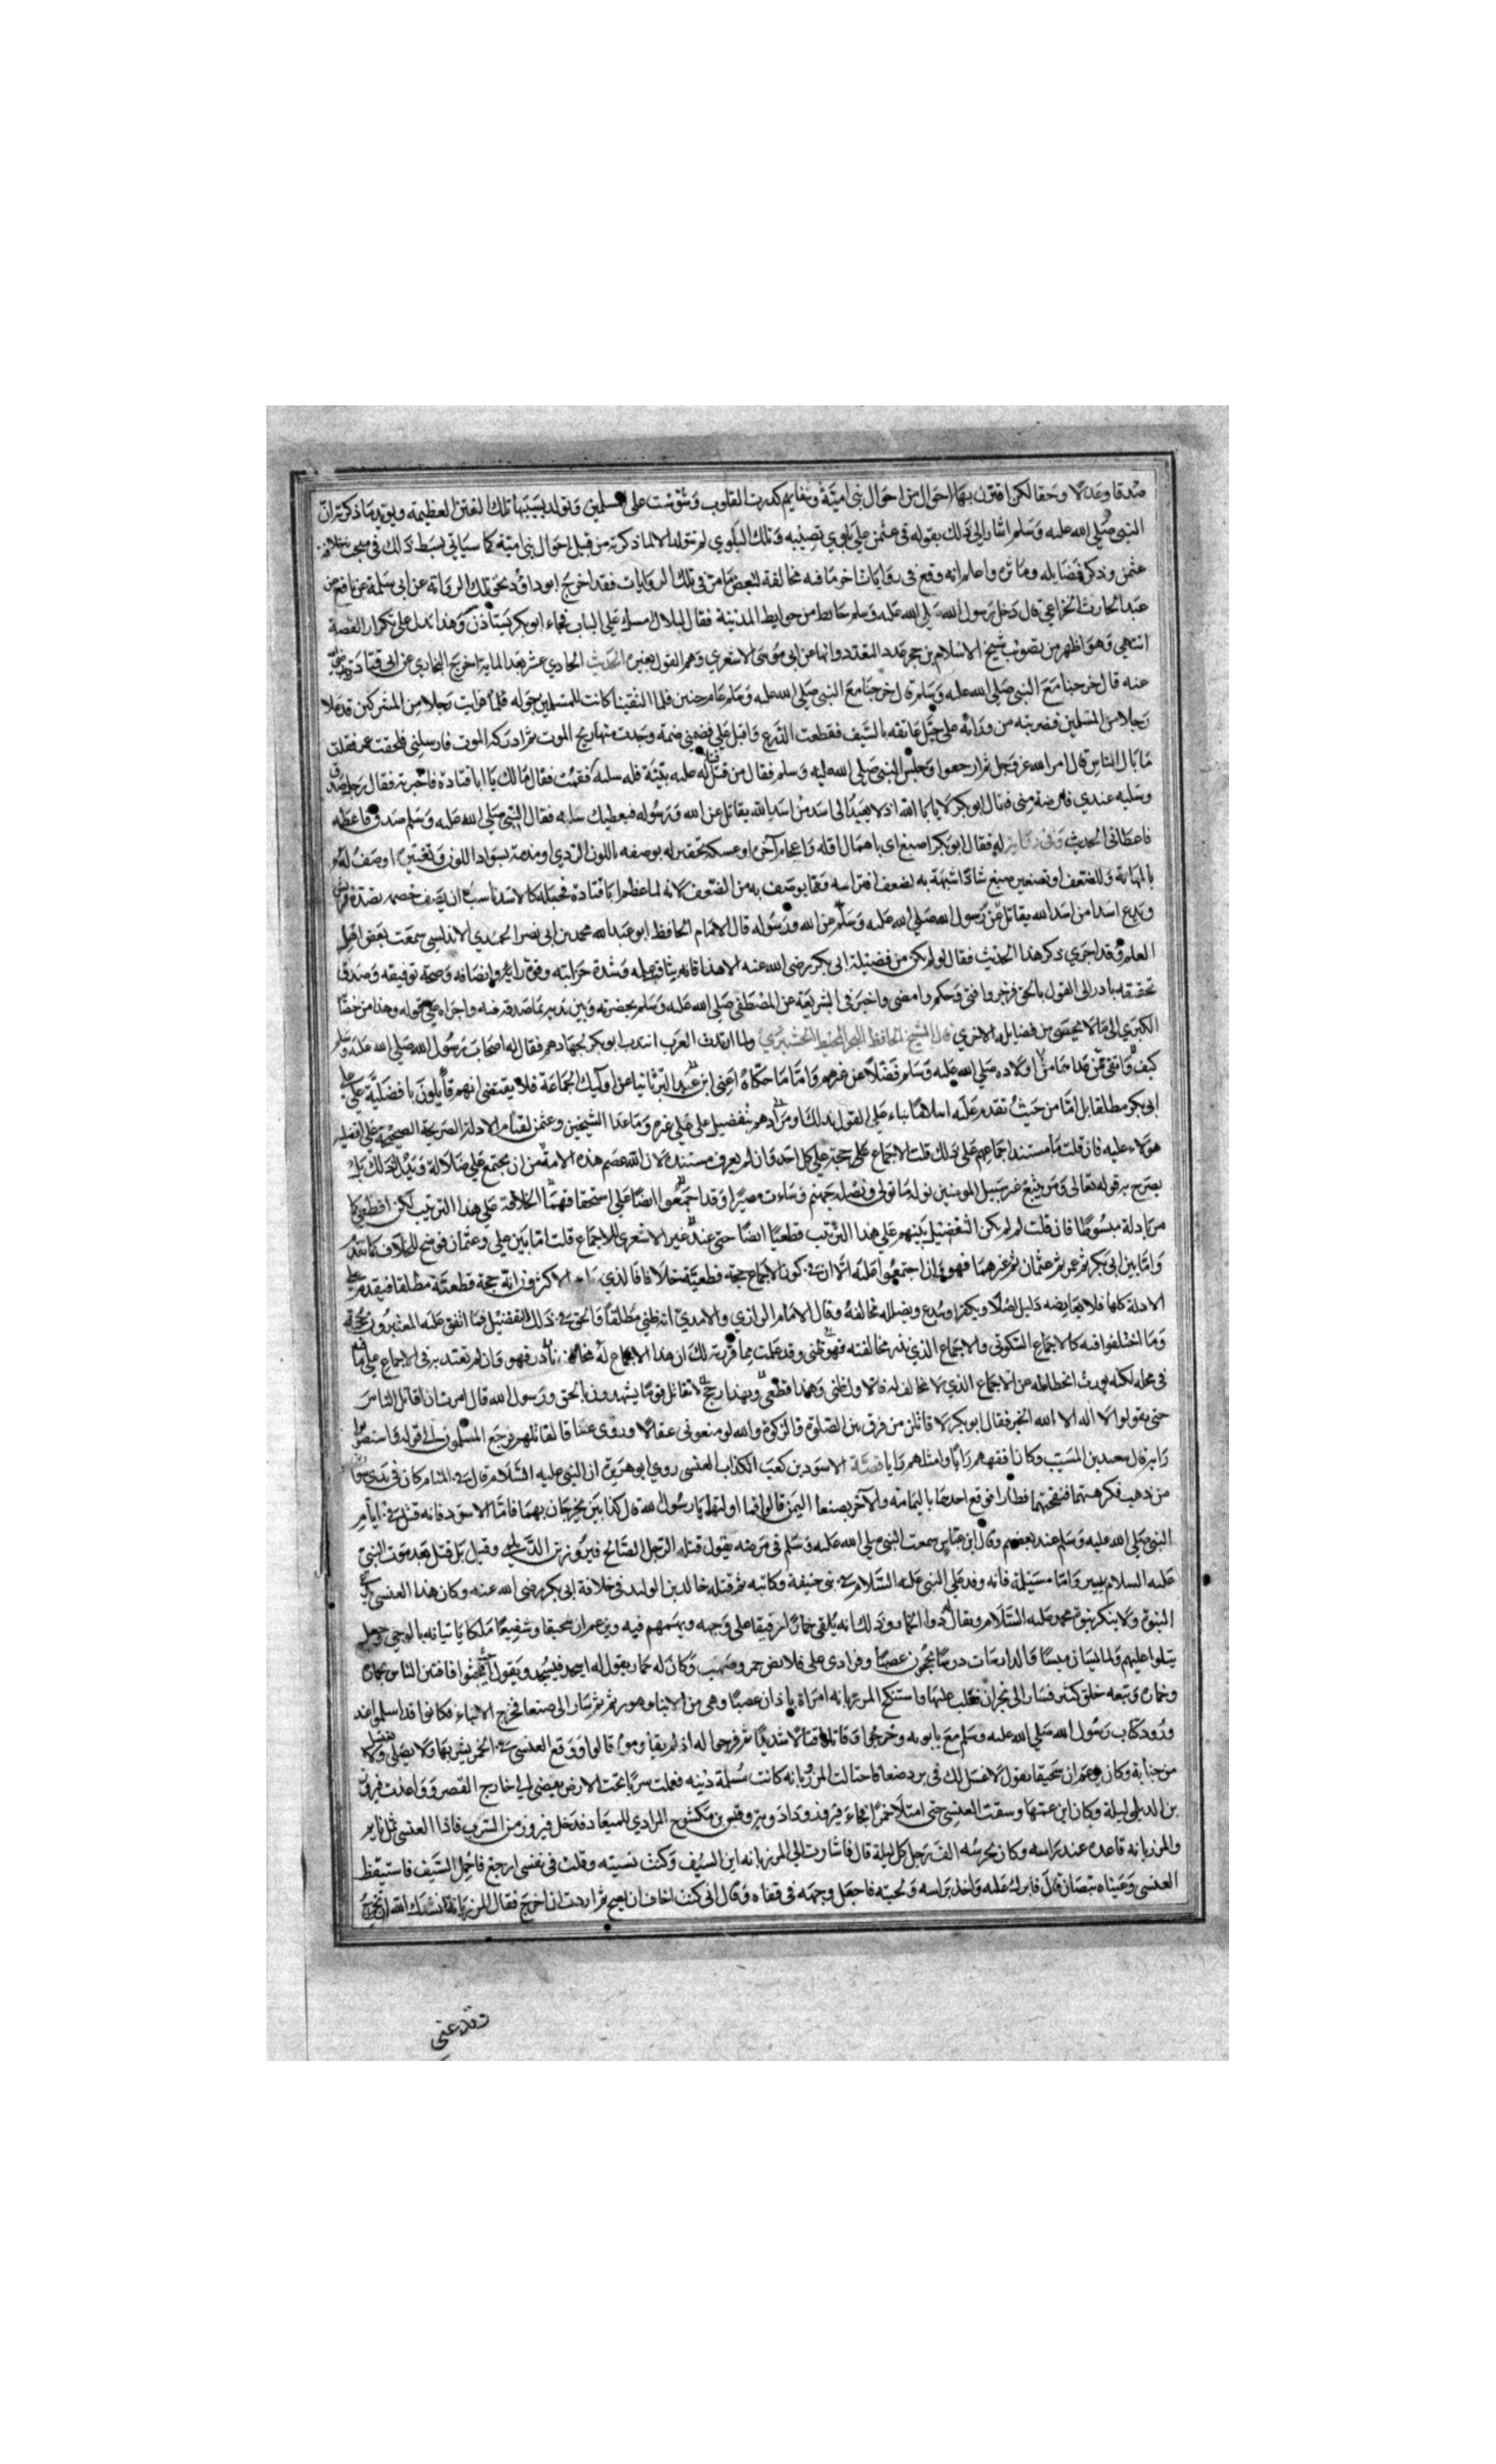 صدقا وعدلا وحقا لكن اقترن بها احوال من احوال بني امية وتغايم كدرت القلوب وشوشت على المسلمين وتولد بسببها تلك الفتن العظيمة ويويد ما ذكرته ان
النبي صلى الله عليه وسلم اشار الى ذلك بقوله في عثمن على بلوي تصيبه وتلك البلوي لم تتولد الا لما ذكرته من قبل احوال بني امية كما سياتي بسط ذلك في مبحث خلافة
عثمن وذكر فضايله وماثره واعلم انه وقع في روايات اخر ما فيه مخالفة لبعض ما مر في تلك الروايات فقد اخرج ابو داود نحو تلك الرواية عن ابي سلمة عن نافع بن
عبد الحارث الخزاعي قال دخل رسول الله صلى الله عليه وسلم حايطا من حوايط المدينة فقال لبلال امسك علي الباب فجاء ابو بكر يستاذن وهذا يدل على تكرار القصة
انتهي وهو اظهر من تصويب شيخ الاسلام بن حجر عدم التعدد وانها عن ابي موسى الاشعري وهم القول بغيره الحديث الحادي عشر بعد الماية اخرج البخاري عن ابي قتادة رضي الله
عنه قال خرجنا مع النبي صلى الله عليه وسلم قال خرجنا مع النبي صلى الله عليه وسلم عام حنين فلما التقينا كانت للمسلمين جوله فلما فرايت رجلا من المشركين قد علا
رجلا من المسلمين فضربته من ورائه على حبل عاتقه بالسيف فقطعت الدرع واقبل علي فضمني ضمة وجدت منها ريح الموت ثم ادركه الموت فارسلني فلحقت عمر فقلت
ما بال الناس قال امر الله عز وجل ثم ارجعوا وجلس النبي صلى الله عليه وسلم فقال من قتل قتيلا له عليه بينة فله سلبه فقمت فقال مالك يا ابا قتادة فاخبرته فقال رجل صدق
وسلبه عندي فارضه مني فقال ابو بكر لاها الله اذ لا يعمد الى اسد من اسد الله يقاتل عن الله ورسوله فيعطيك سلبه فقال النبي صلى الله عليه وسلم صدق فاعطه
فاعطاني الحديث وفي رواية له فقال ابو بكر اصيبغ اي باهمال اوله واعجام آخره او عكسه تحقير له بوصفه باللون الردي او مذمة بسواد اللون وتغيره او وصف له
بالمهانة وللضعف او تصغير ضبع شاذا شبهه به لضعف افتراسه وما يوصف به من الضعف لانه لما عظم ابا قتادة فجعله كالاسد ناسب ان يصف خصمه بضده
ويدع اسدا من اسد الله يقاتل عن رسول الله صلى الله عليه وسلم عن الله ورسوله قال الامام الحافظ ابو عبد الله محمد بن ابي نصر الحميدي الاندلسي سمعت بعض اهل
العلم وقد اجري ذكر هذا الحديث فقال لو لم يكن من فضيلة ابي بكر رضي الله عنه الا هذا فانه بثاقب علمه وشدة حزامته وقوة رايه وانصافه وصحة توفيقه وصدق
تحقيقه بادر الى القول بالحق فزجر وافتى وحكم وامضى واخبر في الشريعة عن المصطفى صلى الله عليه وسلم بحضرته وبين يديه بما صدقه فيه واجراه على قوله وهذا من خصا
الكبري الى ما لا يحصى من فضايله الاخري قال الشيخ الحافظ ولما ارتدت العرب انتدب ابو بكر لجهادهم فقال له اصحاب رسول الله صلى الله عليه وسلم
اولاده صلى الله عليه وسلم فضلا عن غيرهم واما ما حكاه اعني ابن عبد البر ثانيا عن اوليك الجماعة فلا يقتضي انهم قايلون بافضلية علي علي
ابي بكر مطلقا بل اما من حيث تقدمه عليه اسلاما بناء على القول بذلك او مرادهم بتفضيل علي على غيره وما عدا الشيخين وعثمن لقيام الادلة الصريحة الصحيحة على افضلية
هؤلاء عليه فان قلت ما مستند اجماعهم على ذلك قلت الاجماع على حجة على كل احد وان لم يعرف مستنده لان الله عصم هذه الامة من ان يجتمع على ضلالة ويدل لذلك بل
يصرح به قوله تعالى ومن يتبع غير سبيل المومنين نوله ما تولى ونصله جهنم وساءت مصيرا وقد اجمعوا ايضا على استحقاقهم الخلافة على هذا الترتيب لكن قطعي كما
مر بادلة مبسوطا فان قلت لم لم يكن التفضيل بينهم على هذا الترتيب قطعيا ايضا حتى عند غير الاشعري للاجماع قلت اما بين علي وعثمان فوضح للخلاف كما تقدم
واما بين ابي بكر ثم عمر ثم عثمان ثم غيرهما فهو وان اجتمعوا عليه الا ان في كون الاجماع حجة قطعية خلافا فالذي الاكثرون انه حجة قطعية مطلقا فيقدم على
الادلة كلها فلا يعارضه دليل اصلا ويكفر او يبدع ويضلل مخالفه وقال الامام الرازي والامدي انه ظني مطلقا والحق في ذلك التفضيل فما اتفق عليه المعتبرون حجة
وما اختلفوا فيه كالاجماع السكوتي والاجماع الذي ندر مخالفته فهو ظني وقد علمت مما قررته لك ان هذا الاجماع له مخالف نادر فهو وان لم يعتد به في الاجماع على ما
في محله لكنه يورث انحطاطه عن الاجماع الذي لا مخالف له فالاول ظني وهذا قطعي وبهذا
حتى يقولوا لا اله الا الله الخبر فقال ابو بكر لاقاتلن من فرق بين الصلوة والزكوة والله لو منعوني عقالا وروي عناقا لقاتلهم فرجع المسلمون الى قوله
رايه قال سعيد بن المسيب وكان افقههم رايا وامثلهم رايا قصة الاسود بن كعب الكذاب العنسي روي ابو هريرة ان النبي عليه السلام قال في المنام كان في يدي
من ذهب فكرهتهما فنفختهما فطارا فوقع احدهما باليمامة والآخر بصنعا اليمن قالوا فما اولتها يا رسول الله قال كذابين يخرجان بهما فاما الاسود فانه قتل في ايام
النبي صلى الله عليه وسلم عند بعضهم وقال ابن عباس سمعت النبي صلى الله عليه وسلم في مرضه يقول قتله الرجل الصالح فيروز بن الديلمي وقيل بل قتل بعد موت النبي
عليه السلام بيسير واما مسيلمة فانه وفد على النبي عليه السلام في بني حنيفة وكاتبه ثم قتله خالد بن الوليد في خلافة ابي بكر رضي الله عنه وكان هذا العنسي
النبوة ولا ينكر نبوة محمد عليه السلام ويقال ذوا الخمار وذلك انه يلقي خمارا رقيقا على وجهه ويهمهم فيه ويزعم ان سحيقا وشفيعا ملكا ياتيانه بالوحي وجعل
يتلوا عليهم والمايسات ميسا والدارسات درسا يحجون عصبا وفرادى على قلايص حمر وصهب وكان له حمار يقول له اسجد فيسجد ويقول فافتتن الناس بحماره
وخماره وتبعه خلق كثير فسار الى نجران فغلب عليها واستنكح المرزبانه امراة باذان غصبا وهي من الابناء ثم سار الى صنعا فخرج الابناء فكانوا قد اسلموا عند
ورود كتاب رسول الله صلى الله عليه وسلم مع وخرجوا وقاتلوا قتالا شديدا قالوا ووقع العنسي في الخمر يشربها ولا يصلي ولا يغتسل
من جنابة وكان يزعم ان سحيقا يقول لا غسل لك في برد صنعا فاحتالت المرزبانه كانت مسلمة دينه فعملت سربا تحت الارض يفضي الى خارج القصر وواعدت فيروز
بن الديلمي ليلة وكان ابن عمتها وسقت العنسي حتى امتلا خمرا فجاء فيروز ودادويه وقيس بن مكشوح المرادي للميعاد فدخل فيروز من السرب فاذا العنسي ثمل نايم
والمرزبانه قاعدة عند راسه وكان يحرسه الف رجل كل ليلة قال فاشارت الي المرزبانه اين السيف وكنت نسيته وقلت في نفسي ارجع فاحمل السيف فاستيقظ
العنسي وعيناه تبصان قال فابرك عليه واخذ براسه ولحيته فاجعل وجهه في قفاه وقال اني كنت اخاف ان يصيح ثم اردت ان اخرج فقال المرزبانة انشدك الله ان تخرج
وقد عني